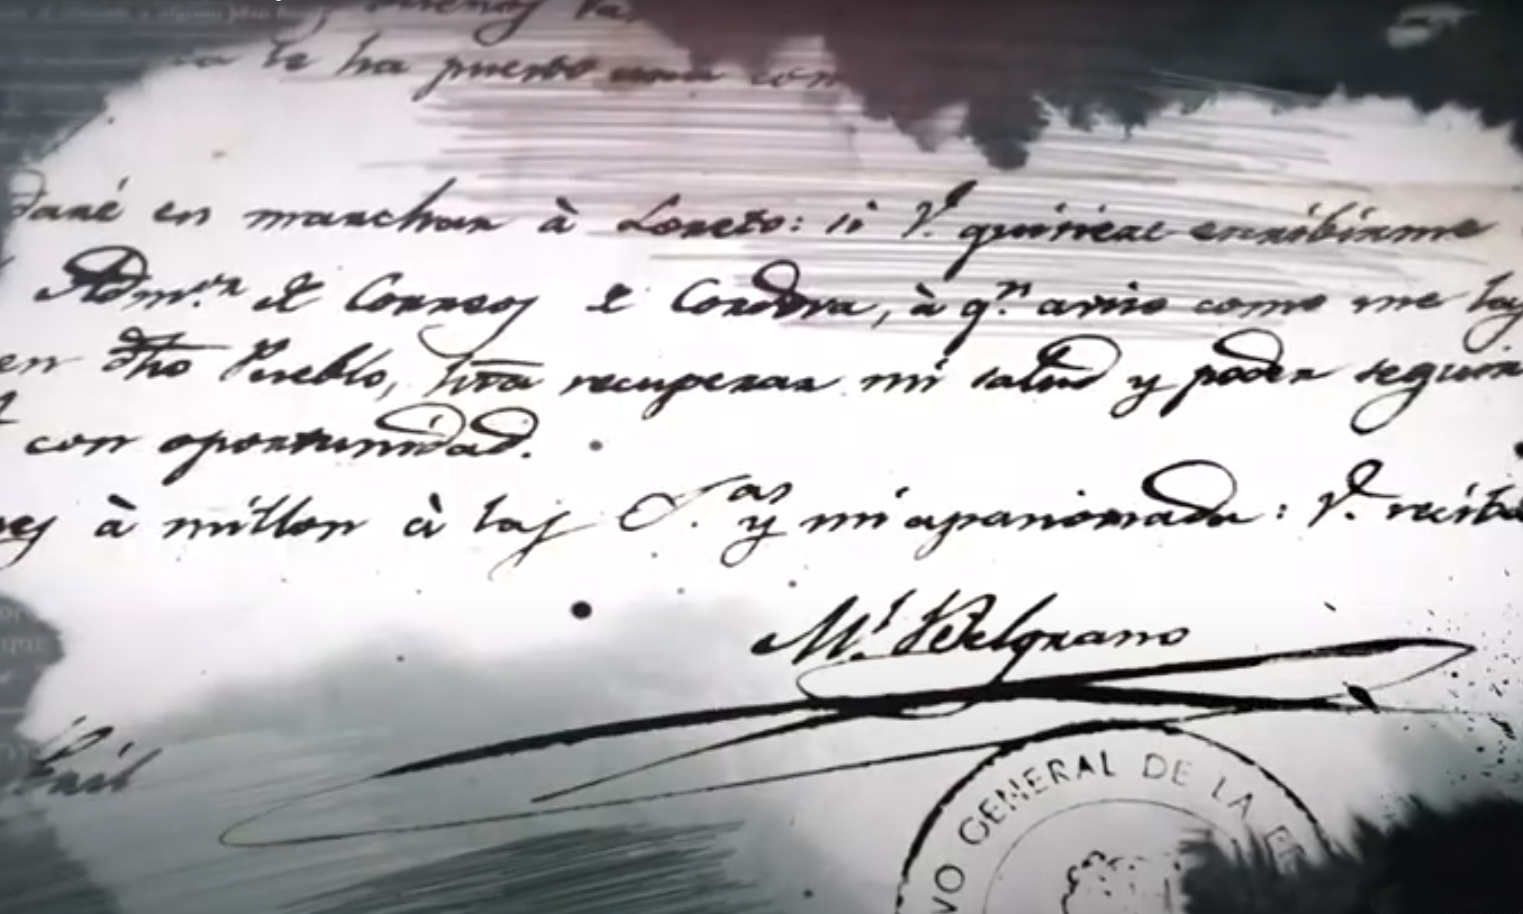 le ha puesto una com
daré en marchar à Loreto: si V. quisiese escribirme
Adm.or de Correos de Cordova, à q.n aviso como me las
en dho Pueblo, hta recuperar mi salud y poder seguir
con oportunidad.
à millon à las S.as y mi apasionada: V. reciba
M.l Belgrano
VO GENERAL DE LA